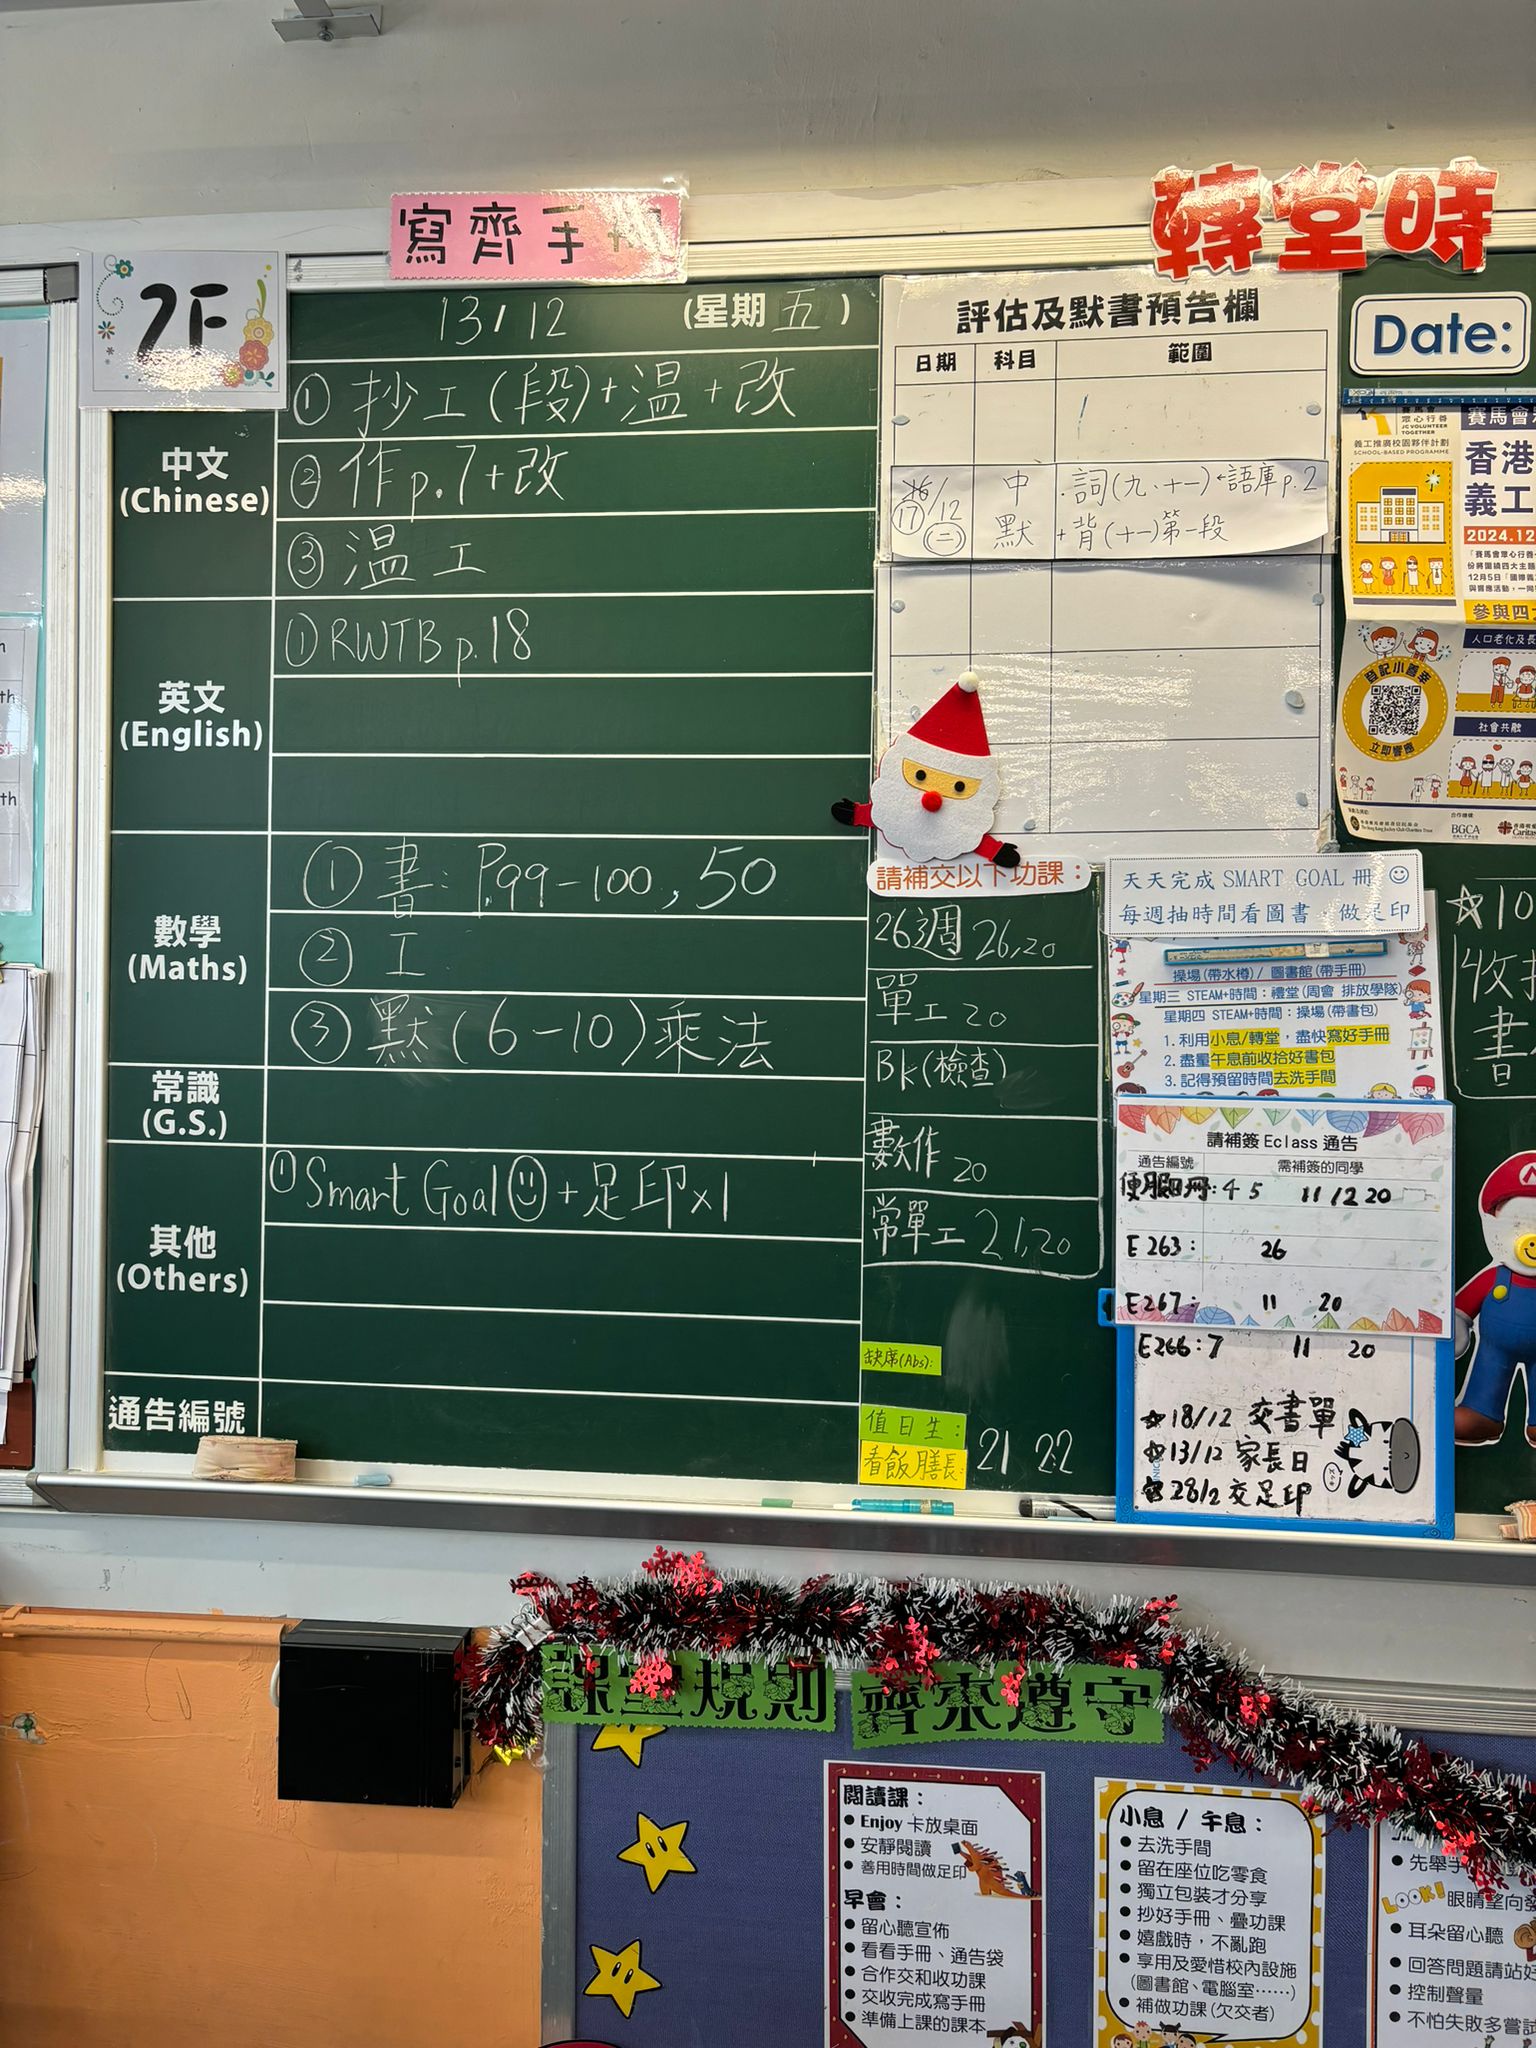 寫齊手
轉堂時
2F
13/12 (星期五)
中文
(Chinese)
① 抄工(段)+溫+改
② 作p.7+改
③ 溫工
英文
(English)
① RWTB p.18
數學
(Maths)
① 書: P.99-100, 50
② 工
③ 默(6-10)乘法
常識
(G.S.)
其他
(Others)
① Smart Goal +足印x1
通告編號
評估及默書預告欄
日期 科目 範圍
17/12 (二) 中默 詞(九、十一)←語庫p.2
+背(十一)第一段
請補交以下功課：
26週 26,20
單工 20
Bk(檢查)
數作 20
常單工 21,20
缺席(Abs):
值日生：
看飯膳長: 21 22
Date:
賽馬會
眾心行善
JC VOLUNTEER
TOGETHER
義工推廣校園夥伴計劃
SCHOOL-BASED PROGRAMME
香港
義工
2024.12
參與四
人口老化及長
登記小善幸
立即響應
社會共融
合作機構
BGCA
Caritas
天天完成 SMART GOAL 冊
每週抽時間看圖書、做足印
操場(帶水樽)/ 圖書館(帶手冊)
星期三 STEAM+時間：禮堂(周會 排放學隊)
星期四 STEAM+時間：操場(帶書包)
1. 利用小息/轉堂，盡快寫好手冊
2. 盡量午息前收拾好書包
3. 記得預留時間去洗手間
請補簽 Eclass 通告
通告編號 需補簽的同學
4 5 11 12 20
E263: 26
E267: 11 20
E266: 7 11 20
☆18/12 交書單
☆13/12 家長日
28/2 交足印
☆10
收
書
課室規則 齊來遵守
閱讀課：
● Enjoy 卡放桌面
● 安靜閱讀
● 善用時間做足印
早會：
● 留心聽宣佈
● 看看手冊、通告袋
● 合作交和收功課
● 交收完成寫手冊
● 準備上課的課本
小息 / 午息：
● 去洗手間
● 留在座位吃零食
● 獨立包裝才分享
● 抄好手冊、疊功課
● 嬉戲時，不亂跑
● 享用及愛惜校內設施
(圖書館、電腦室……)
● 補做功課(欠交者)
● 先舉手
LOOK! 眼睛望向發
● 耳朵留心聽
● 回答問題請站好
● 控制聲量
● 不怕失敗多嘗試